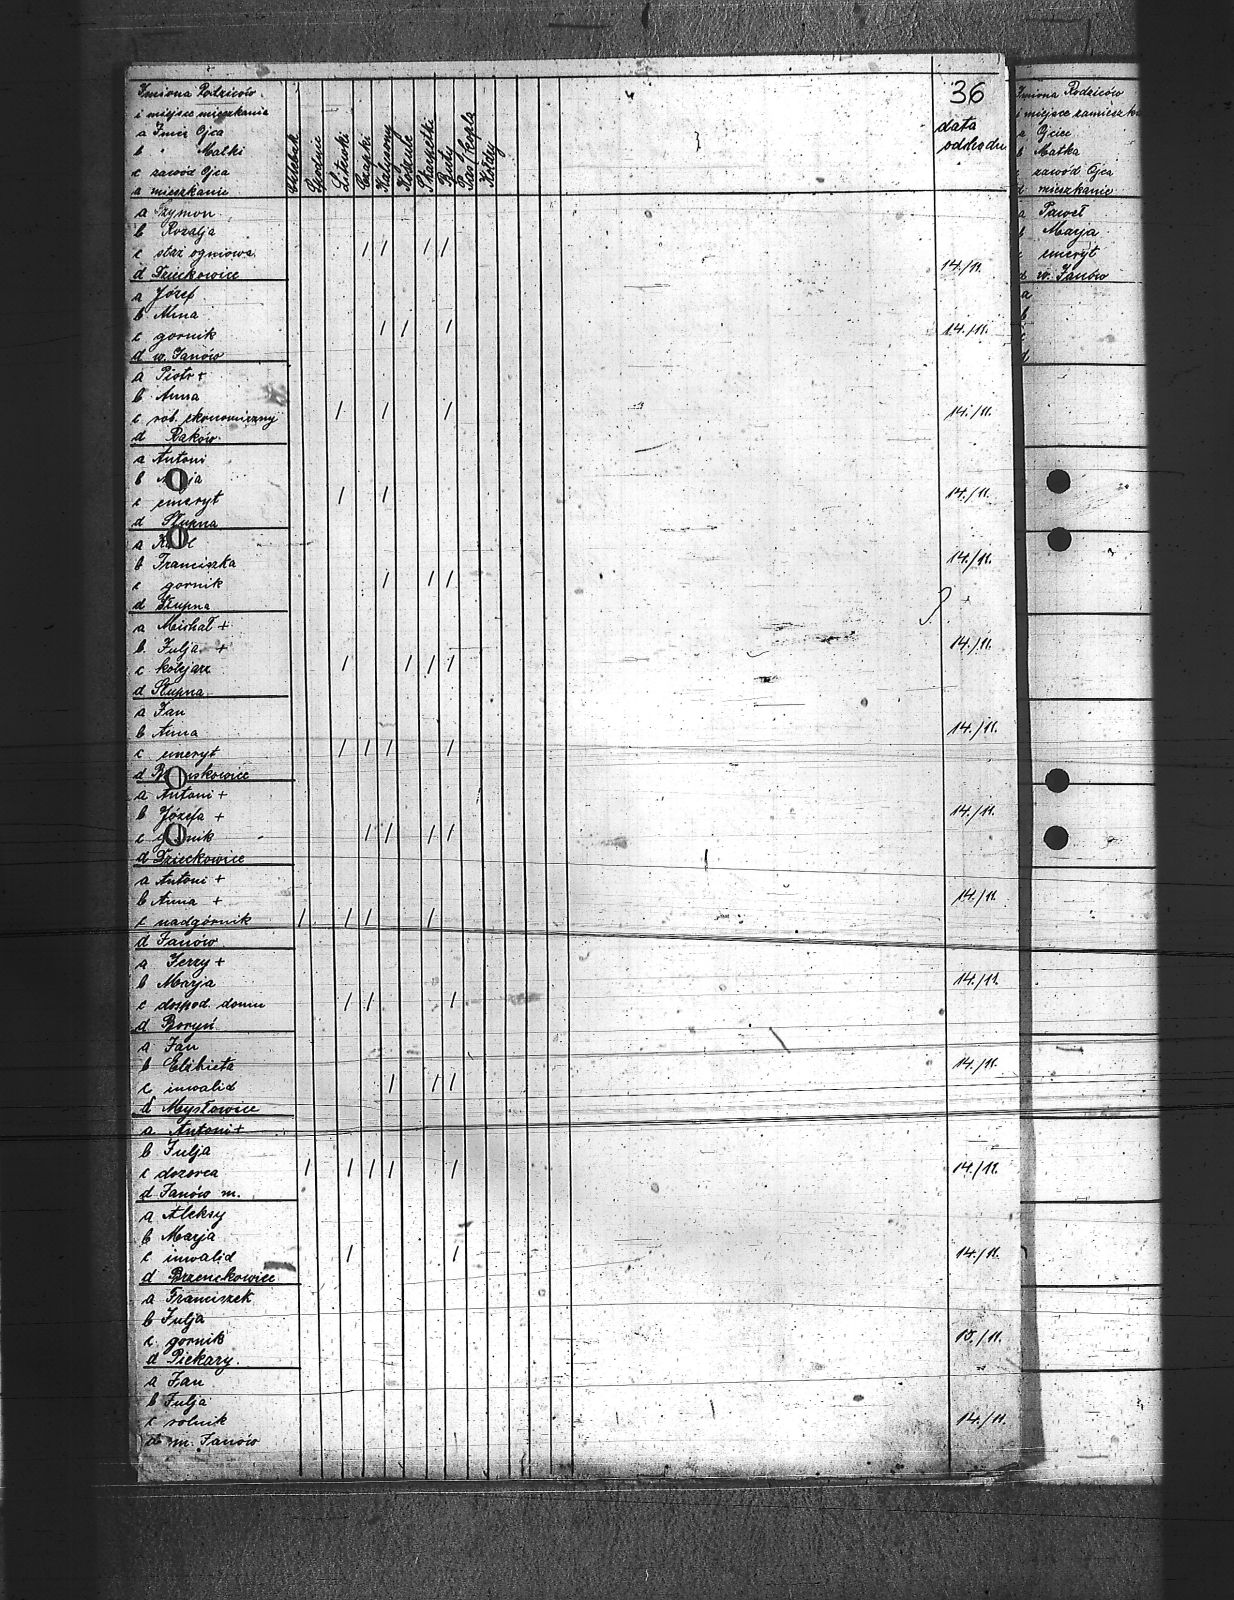 36
Imiona Rodziców
i miejsce mieszkania
a Imię Ojca
b " Matki
c zawód Ojca
a mieszkanie
Spodnie
Litewki
Czapki
Kalesony
Koszule
Skarpetki
Buty
Pas /kopla
Kołdry
data
a Szymon
b Rozalja
c staż ogniowa
d Dzieckowice
/ / / /
14./11.
a Józef
b Anna
c gornik
d w. Janów
/ / /
14./11.
a Piotr +
b Anna
c rob. ekonomiczny
d Raków
/ / /
14./11.
a Antoni
b
c emeryt
d Słupna
/ /
14./11.
a
b Franciszka
c gornik
d Słupna
/ / /
14./11.
a Michał +
b Julja +
c kolejarz
d Słupna
/ / / /
14./11.
a Jan
b Anna
c emeryt
d
/ / / /
14./11.
a Antoni +
b Józefa +
c
d Dzieckowice
/ / / /
14./11.
a Antoni +
b Anna +
c nadgórnik
d Janów
/ / / /
14./11.
a Jerzy +
b Marja
c dospod. domu
d Boryń
/ / /
14./11.
a Jan
b Elżbieta
c inwalid
d Mysłowice
/ / /
14./11.
a Antoni +
b Julja
c dozorca
d Janów m.
/ / / / /
14./11.
a Aleksy
b Marja
c inwalid
d Brzenckowice
/ /
14./11.
a Franciszek
b Julja
c gornik
d Piekary.
15./11.
a Jan
b Julja
c rolnik
d m. Janów
14./11.
Imiona Rodziców
i miejsce zamieszk
a Ojciec
b Matka
c zawód Ojca
d mieszkanie
a Paweł
b Marja
c emeryt
d w. Janów
a
b
c
d